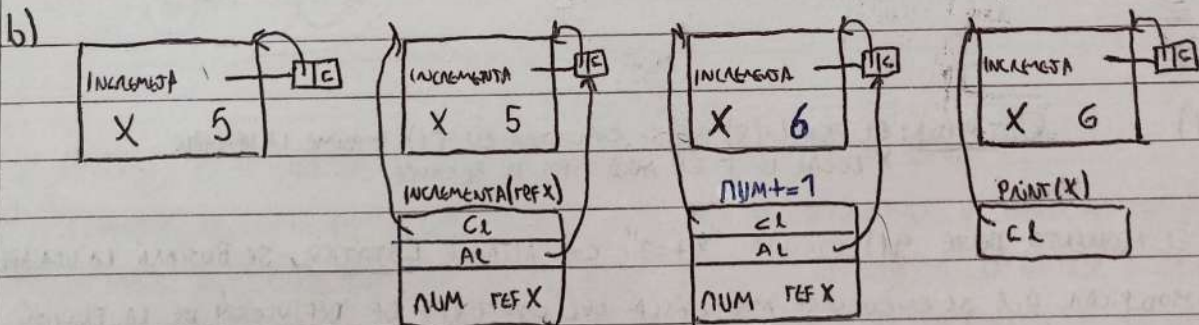 b)
INCREMENTA
C
X 5
INCREMENTA
C
X 5
INCREMENTA(ref X)
CL
AL
NUM ref X
INCREMENTA
C
X 6
NUM+=1
CL
AL
NUM ref X
INCREMENTA
C
X 6
PRINT(X)
CL